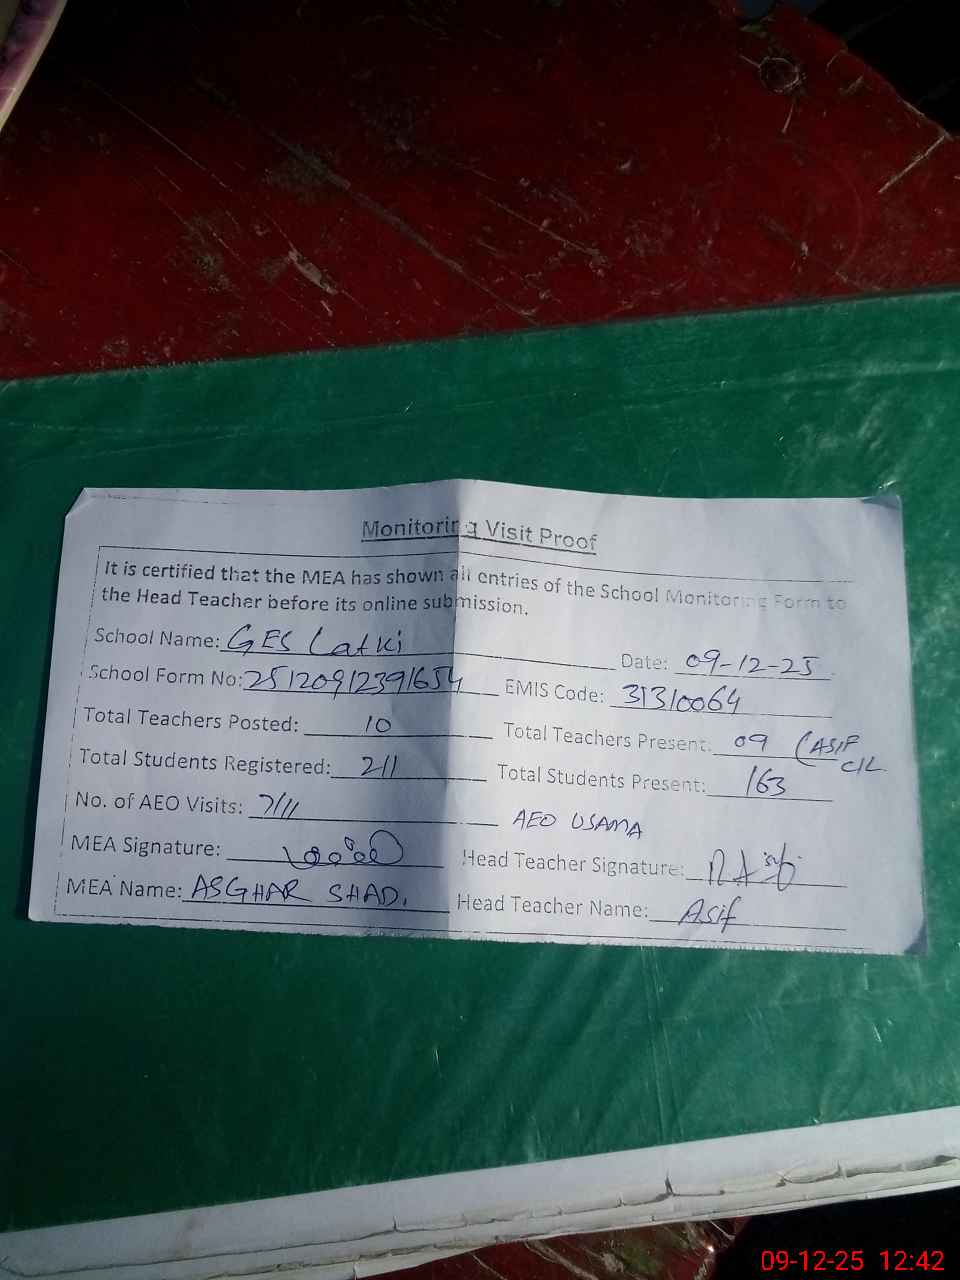 Monitoring Visit Proof
It is certified that the MEA has shown all entries of the School Monitoring Form to
the Head Teacher before its online submission.
School Name: GES Latki Date: 09-12-25
School Form No: 25120912391654 EMIS Code: 31310064
Total Teachers Posted: 10 Total Teachers Present: 09 (ASIF
C/L
Total Students Registered: 211 Total Students Present: 163
No. of AEO Visits: 7/11 AEO USAMA
MEA Signature: Head Teacher Signature:
MEA Name: ASGHAR SHAD. Head Teacher Name: Asif
09-12-25 12:42